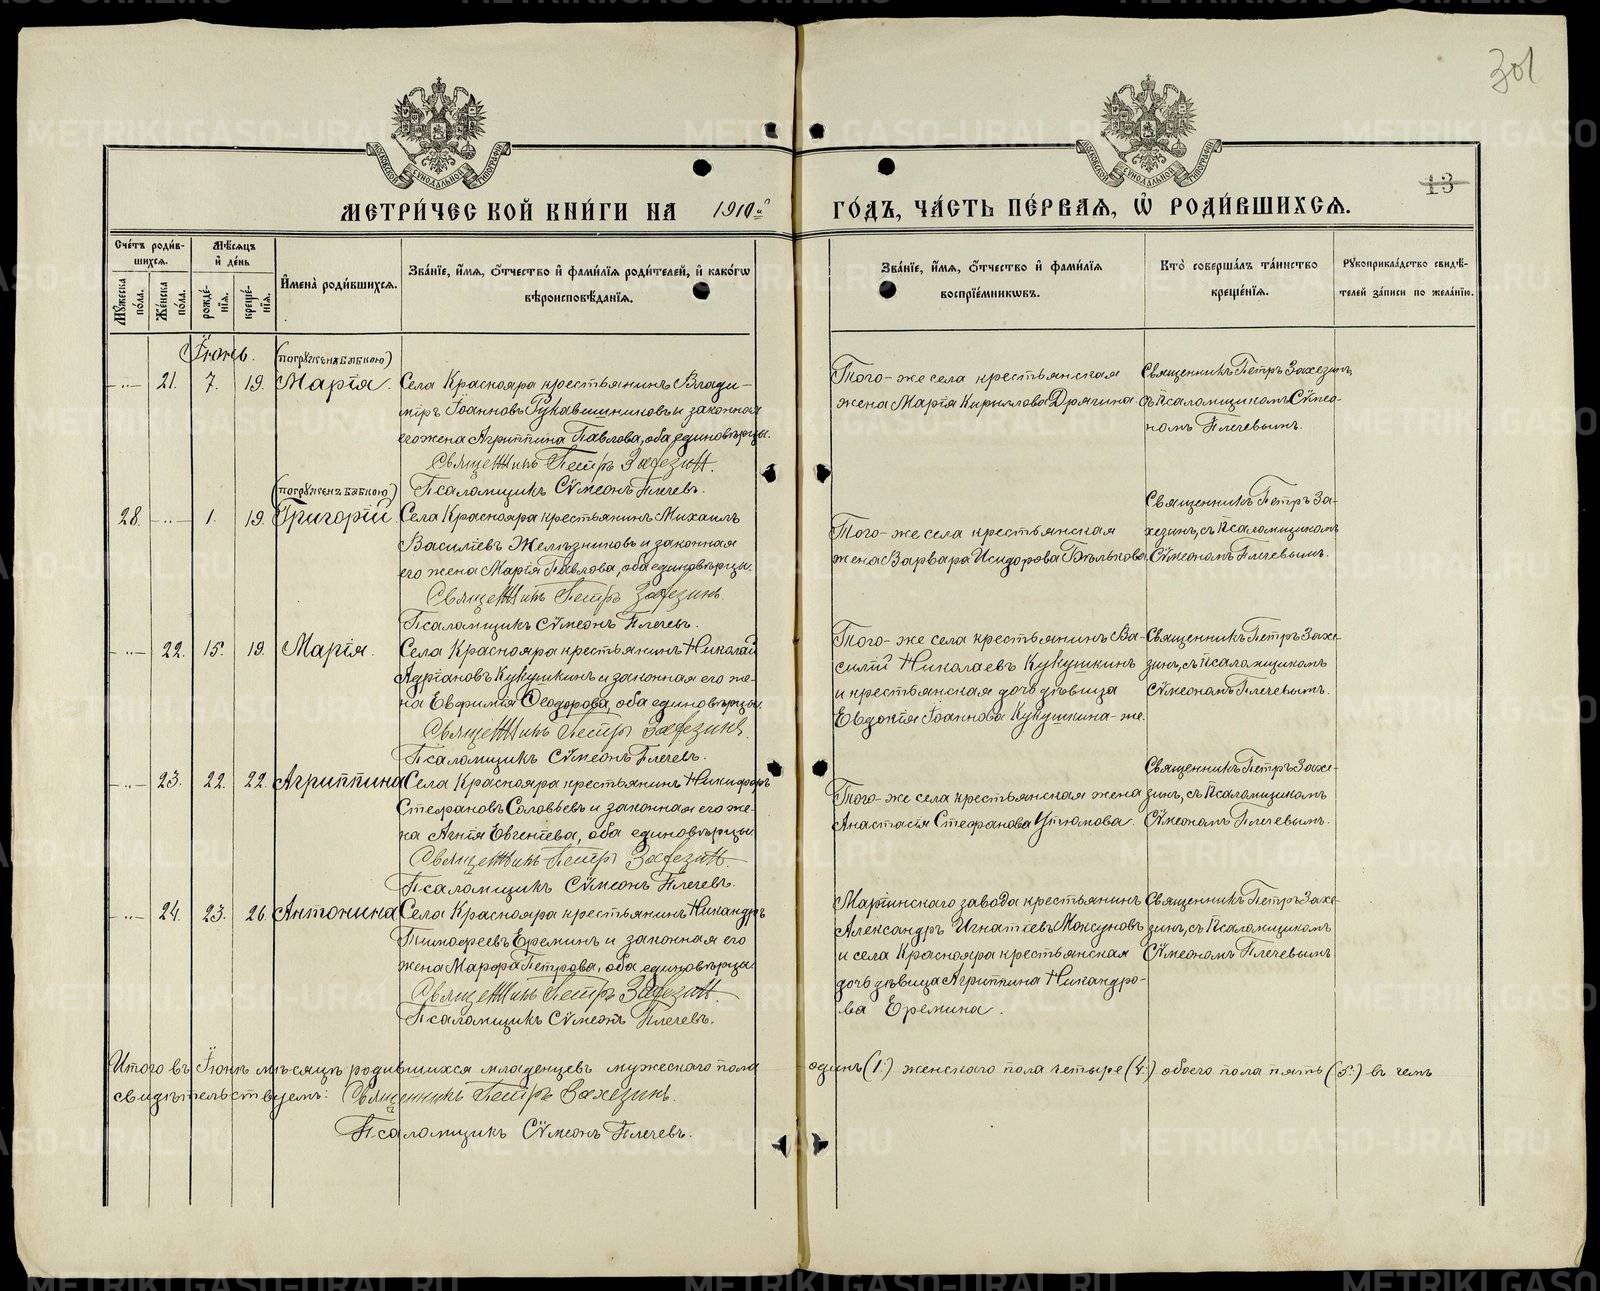 301
13
МОСКОВСКОЙ СѴНОДАЛЬНОЙ ТИПОГРАФІИ
МОСКОВСКОЙ СѴНОДАЛЬНОЙ ТИПОГРАФІИ
МЕТРИ́ЧЕСКОЙ КНИ́ГИ НА 1910й
ГО́ДЪ, ЧА́СТЬ ПЕ́РВАѦ, Ѽ РОДИ́ВШИХСѦ.
Сче́тъ роди́в-
шихсѧ.
Мѣ́сѧцъ
и҆ де́нь
Мꙋ́жеска
по́ла.
Же́нска
по́ла.
рожде́-
нїѧ.
креще́-
нїѧ.
И҆мена̀ роди́вшихсѧ.
Зва́нїе, и҆́мѧ, ѻ҆́тчество и҆ фами́лїѧ роди́телей, и҆ како́гѡ
вѣроисповѣ́данїѧ.
Зва́нїе, и҆́мѧ, ѻ҆́тчество и҆ фами́лїѧ
воспрїе́мникѡвъ.
Кто̀ соверша́лъ та́инство
креще́нїѧ.
Рꙋкоприкла́дство свидѣ́-
телей за́писи по жела́нїю.
Іюнь.
(погружена бабкою)
-..- 21. 7. 19. Марія.
Села Краснояра крестьянинъ Влади-
міръ Іоанновъ Рукавишниковъ и законная
его жена Агриппина Павлова, оба единовѣрцы.
Священникъ Петръ Захезинъ.
Псаломщикъ Сѵмеонъ Плечевъ.
Того-же села крестьянская
жена Марія Кириллова Дрягина.
Священникъ Петръ Захезинъ,
съ Псаломщикомъ Сѵмео-
номъ Плечевымъ.
(погруженъ бабкою)
28. -..- 1. 19. Григорій
Села Краснояра крестьянинъ Михаилъ
Васильевъ Желѣзниковъ и законная
его жена Марія Павлова, оба единовѣрцы.
Священникъ Петръ Захезинъ.
Псаломщикъ Сѵмеонъ Плечевъ.
Того-же села крестьянская
жена Варвара Исидорова Бѣлькова.
Священникъ Петръ За-
хезинъ, съ Псаломщикомъ
Сѵмеономъ Плечевымъ.
-..- 22. 15. 19. Марія.
Села Краснояра крестьянинъ Николай
Адріановъ Кукушкинъ и законная его же-
на Евфимія Ѳеодорова, оба единовѣрцы.
Священникъ Петръ Захезинъ.
Псаломщикъ Сѵмеонъ Плечевъ.
Того-же села крестьянинъ Ва-
силій Николаевъ Кукушкинъ
и крестьянская дочь дѣвица
Евдокія Іоаннова Кукушкина-же.
Священникъ Петръ Захе-
зинъ, съ Псаломщикомъ
Сѵмеономъ Плечевымъ.
-..- 23. 22. 22. Агриппина
Села Краснояра крестьянинъ Никифоръ
Стефановъ Соловьевъ и законная его же-
на Агнія Евгеніева, оба единовѣрцы.
Священникъ Петръ Захезинъ.
Псаломщикъ Сѵмеонъ Плечевъ.
Того-же села крестьянская жена
Анастасія Стефанова Утюмова.
Священникъ Петръ Захе-
зинъ, съ Псаломщикомъ
Сѵмеономъ Плечевымъ.
-..- 24. 23. 26 Антонина
Села Краснояра крестьянинъ Никандръ
Тимофеевъ Ереминъ и законная его
жена Марфа Петрова, оба единовѣрцы.
Священникъ Петръ Захезинъ.
Псаломщикъ Сѵмеонъ Плечевъ.
Маріинскаго завода крестьянинъ
Александръ Игнатіевъ Моксуновъ
и села Краснояра крестьянская
дочь дѣвица Агриппина Никандро-
ва Еремина.
Священникъ Петръ Захе-
зинъ, съ Псаломщикомъ
Сѵмеономъ Плечевымъ
Итого въ Іюнѣ мѣсяцѣ родившихся младенцевъ мужескаго пола одинъ (1.) женскаго пола четыре (4.) обоего пола пять (5.) въ чемъ
свидѣтельствуемъ: Священникъ Петръ Захезинъ.
Псаломщикъ Сѵмеонъ Плечевъ.
METRIKI.GASO-URAL.RU